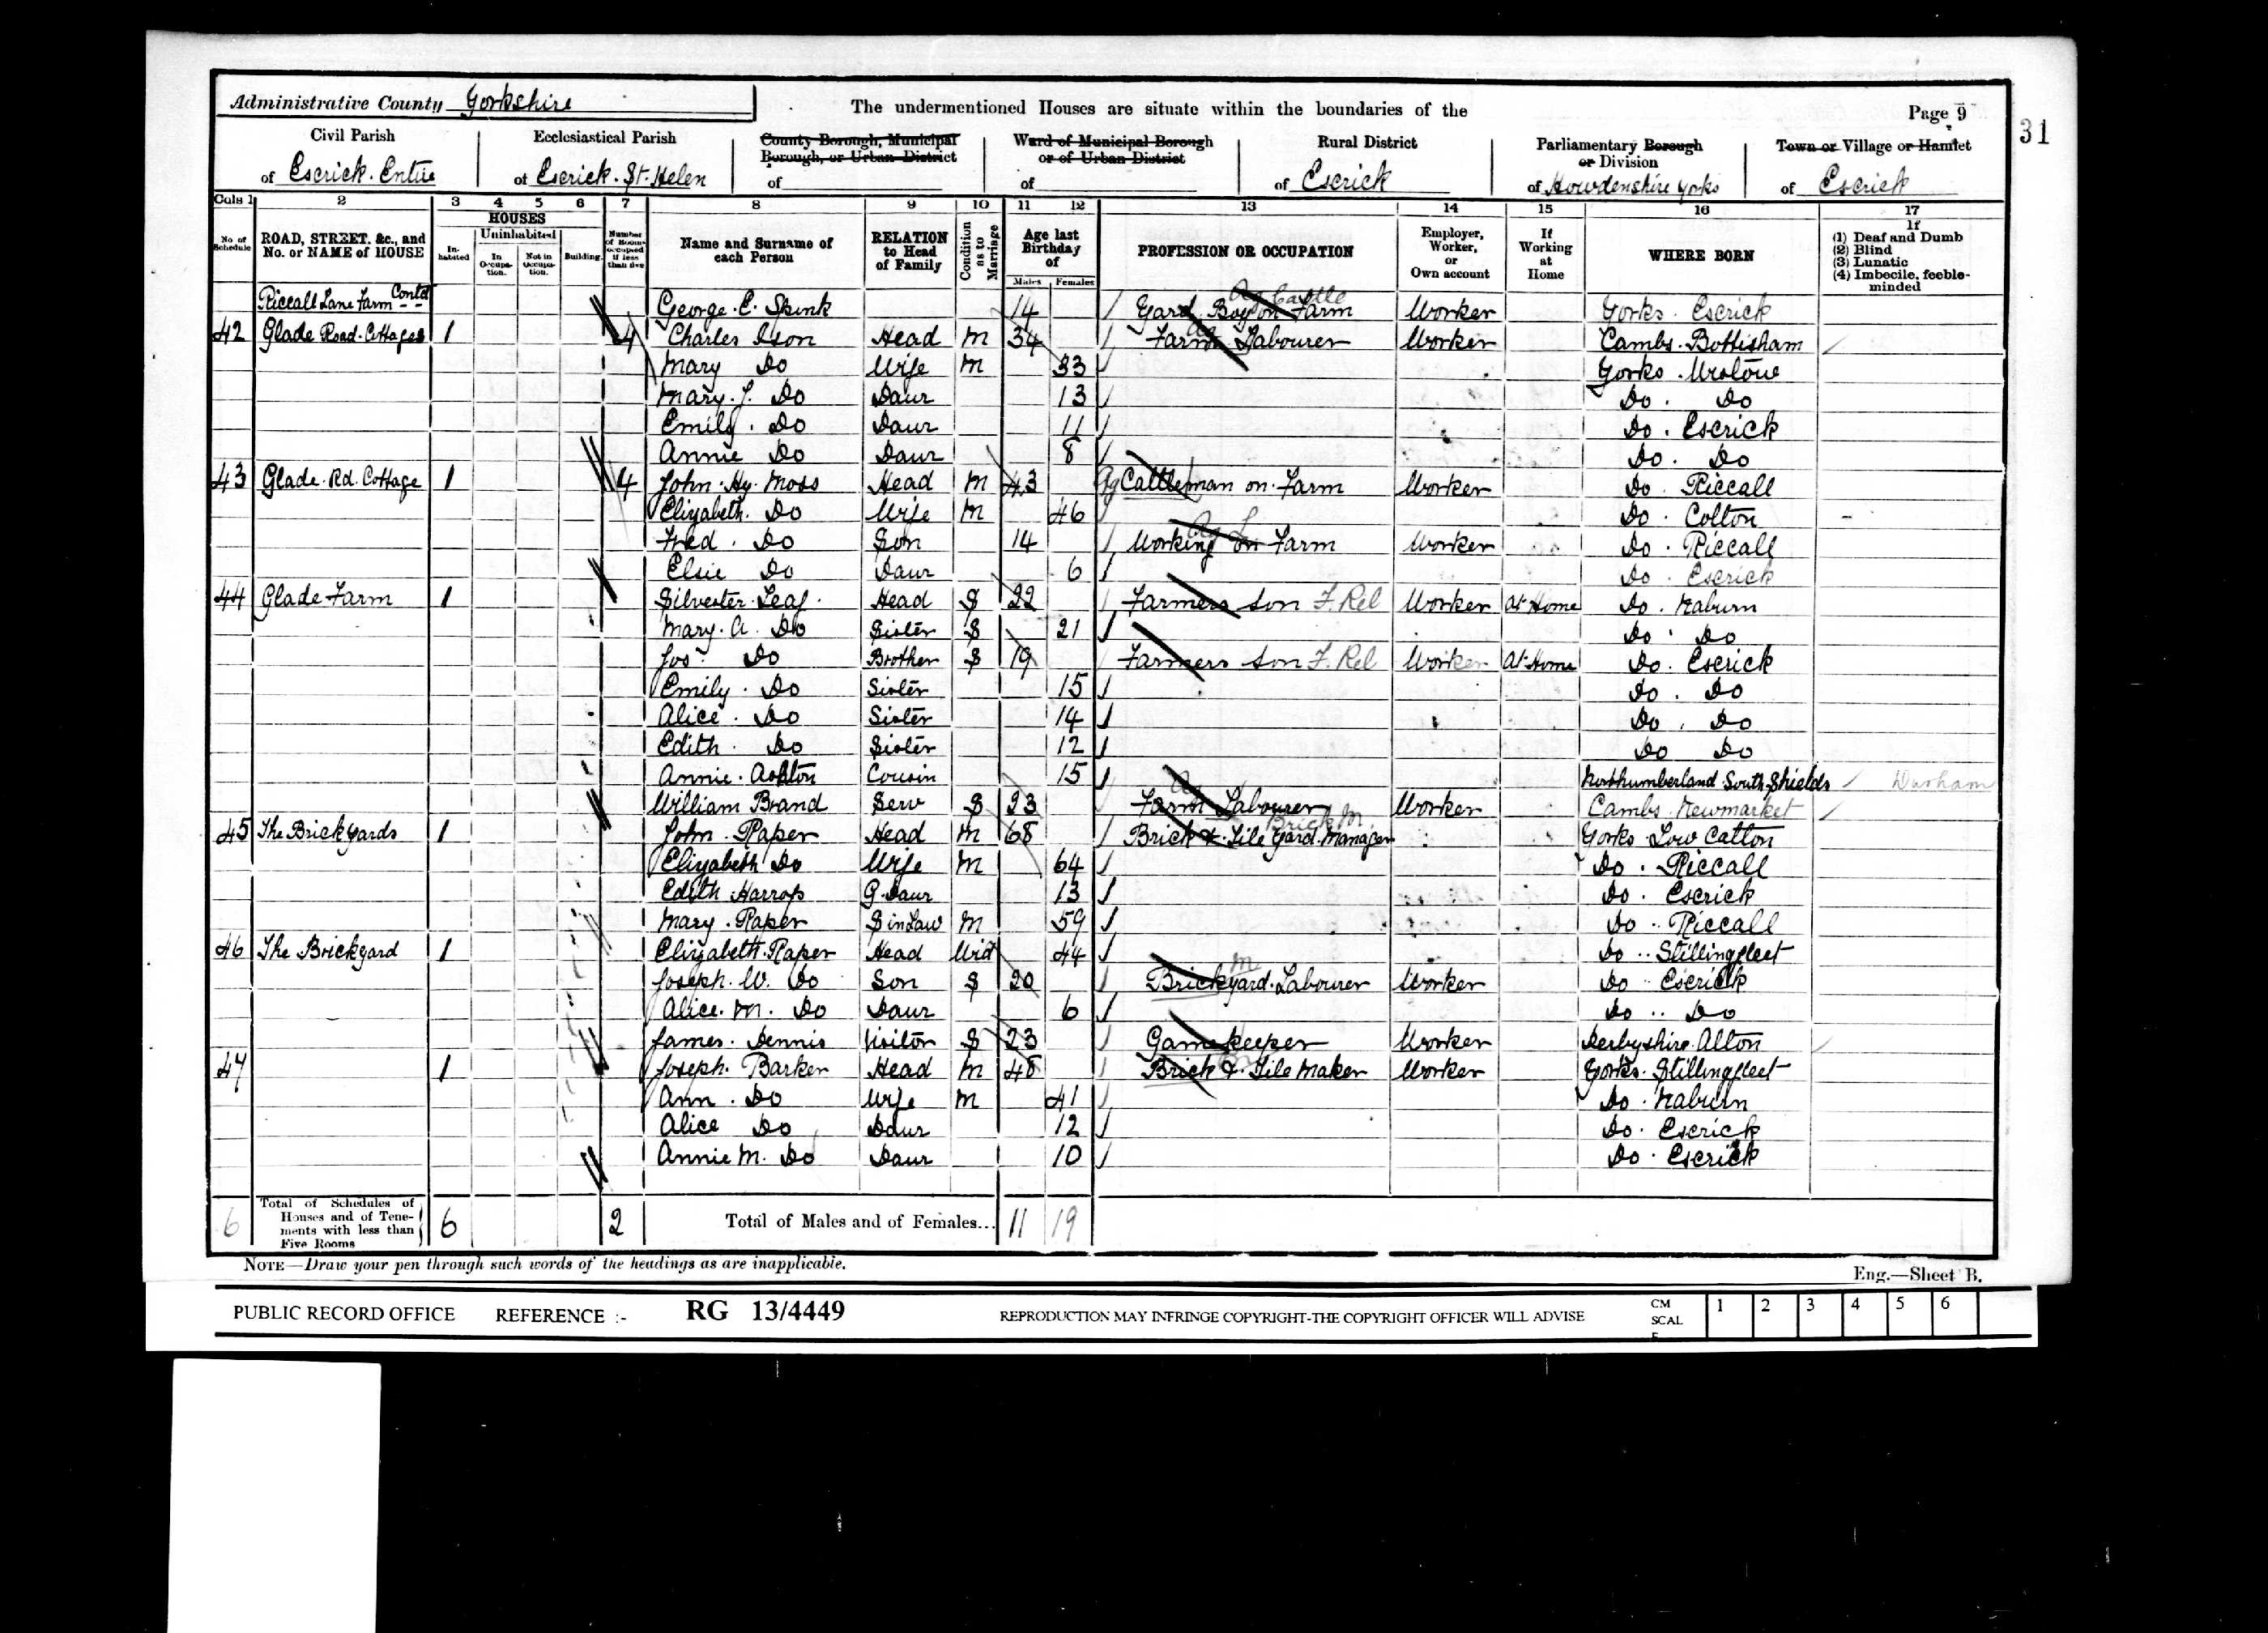 Administrative County Yorkshire
The undermentioned Houses are situate within the boundaries of the
Page 9
31
Civil Parish of Escrick Entire
Ecclesiastical Parish of Escrick St. Helen
County Borough, Municipal Borough, or Urban District of
Ward of Municipal Borough or of Urban District of
Rural District of Escrick
Parliamentary Borough or Division of Howdenshire Yorks
Town or Village or Hamlet of Escrick
Cols 1 2 3 4 5 6 7 8 9 10 11 12 13 14 15 16 17
No of Schedule
ROAD, STREET, &c., and No. or NAME of HOUSE
HOUSES
Inhabited
Uninhabited
In Occupation.
Not in Occupation.
Building.
Number of Rooms occupied if less than five
Name and Surname of each Person
RELATION to Head of Family
Condition as to Marriage
Age last Birthday of
Males Females
PROFESSION OR OCCUPATION
Employer, Worker, or Own account
If Working at Home
WHERE BORN
If
(1) Deaf and Dumb
(2) Blind
(3) Lunatic
(4) Imbecile, feeble-minded
Riccall Lane Farm Contd George. E. Spink 14 Yard Boy on Farm Ag Cattle Worker Yorks. Escrick
42 Glade Road Cottages 1 4 Charles Ison Head M 34 Farm Labourer Ag Worker Cambs. Bottisham
Mary Do Wife M 33 Yorks.
Mary. J. Do Daur 13 Do. Do
Emily. Do Daur 11 Do. Escrick
Annie Do Daur 8 Do. Do
43 Glade. Rd. Cottage 1 4 John. Hy. Moss Head M 43 Ag Cattleman on Farm Worker Do. Riccall
Elizabeth. Do Wife M 46 Do. Colton
Fred. Do Son 14 Working on Farm Ag L Worker Do. Riccall
Elsie Do Daur 6 Do. Escrick
44 Glade Farm 1 Silvester Leaf. Head S 22 Farmers son F. Rel Worker At Home Do. Naburn
Mary. A. Do Sister S 21 Do. Do
Jos. Do Brother S 19 Farmers son F. Rel Worker At Home Do. Escrick
Emily. Do Sister 15 Do. Do
Alice. Do Sister 14 Do. Do
Edith. Do Sister 12 Do Do
Annie. Ashton Cousin 15 Northumberland South Shields Durham
William Brand Serv S 23 Farm Labourer Ag Worker Cambs. Newmarket
45 The Brickyards 1 John. Raper Head M 68 Brick & Tile Yard Manager Brick M. Yorks Low Catton
Elizabeth Do Wife M 64 Do. Riccall
Edith Harrop G. Daur 13 Do. Escrick
Mary. Raper S in Law M 59 Do. Riccall
46 The Brickyard 1 Elizabeth. Raper Head Wid 44 Do. Stillingfleet
Joseph. W. Do Son S 20 Brickyard Labourer M Worker Do Escrick
Alice. M. Do Daur 6 Do. Do
James. Dennis Visitor S 23 Gamekeeper Worker Derbyshire. Alton
47 1 Joseph. Barker Head M 48 Brick & Tile Maker Worker Yorks. Stillingfleet
Ann. Do Wife M 41 Do. Naburn
Alice Do Daur 12 Do. Escrick
Annie M. Do Daur 10 Do. Escrick
6 Total of Schedules of Houses and of Tenements with less than Five Rooms 6 2 Total of Males and of Females... 11 19
NOTE—Draw your pen through such words of the headings as are inapplicable.
Eng.—Sheet B.
PUBLIC RECORD OFFICE REFERENCE :- RG 13/4449 REPRODUCTION MAY INFRINGE COPYRIGHT-THE COPYRIGHT OFFICER WILL ADVISE CM SCALE 1 2 3 4 5 6